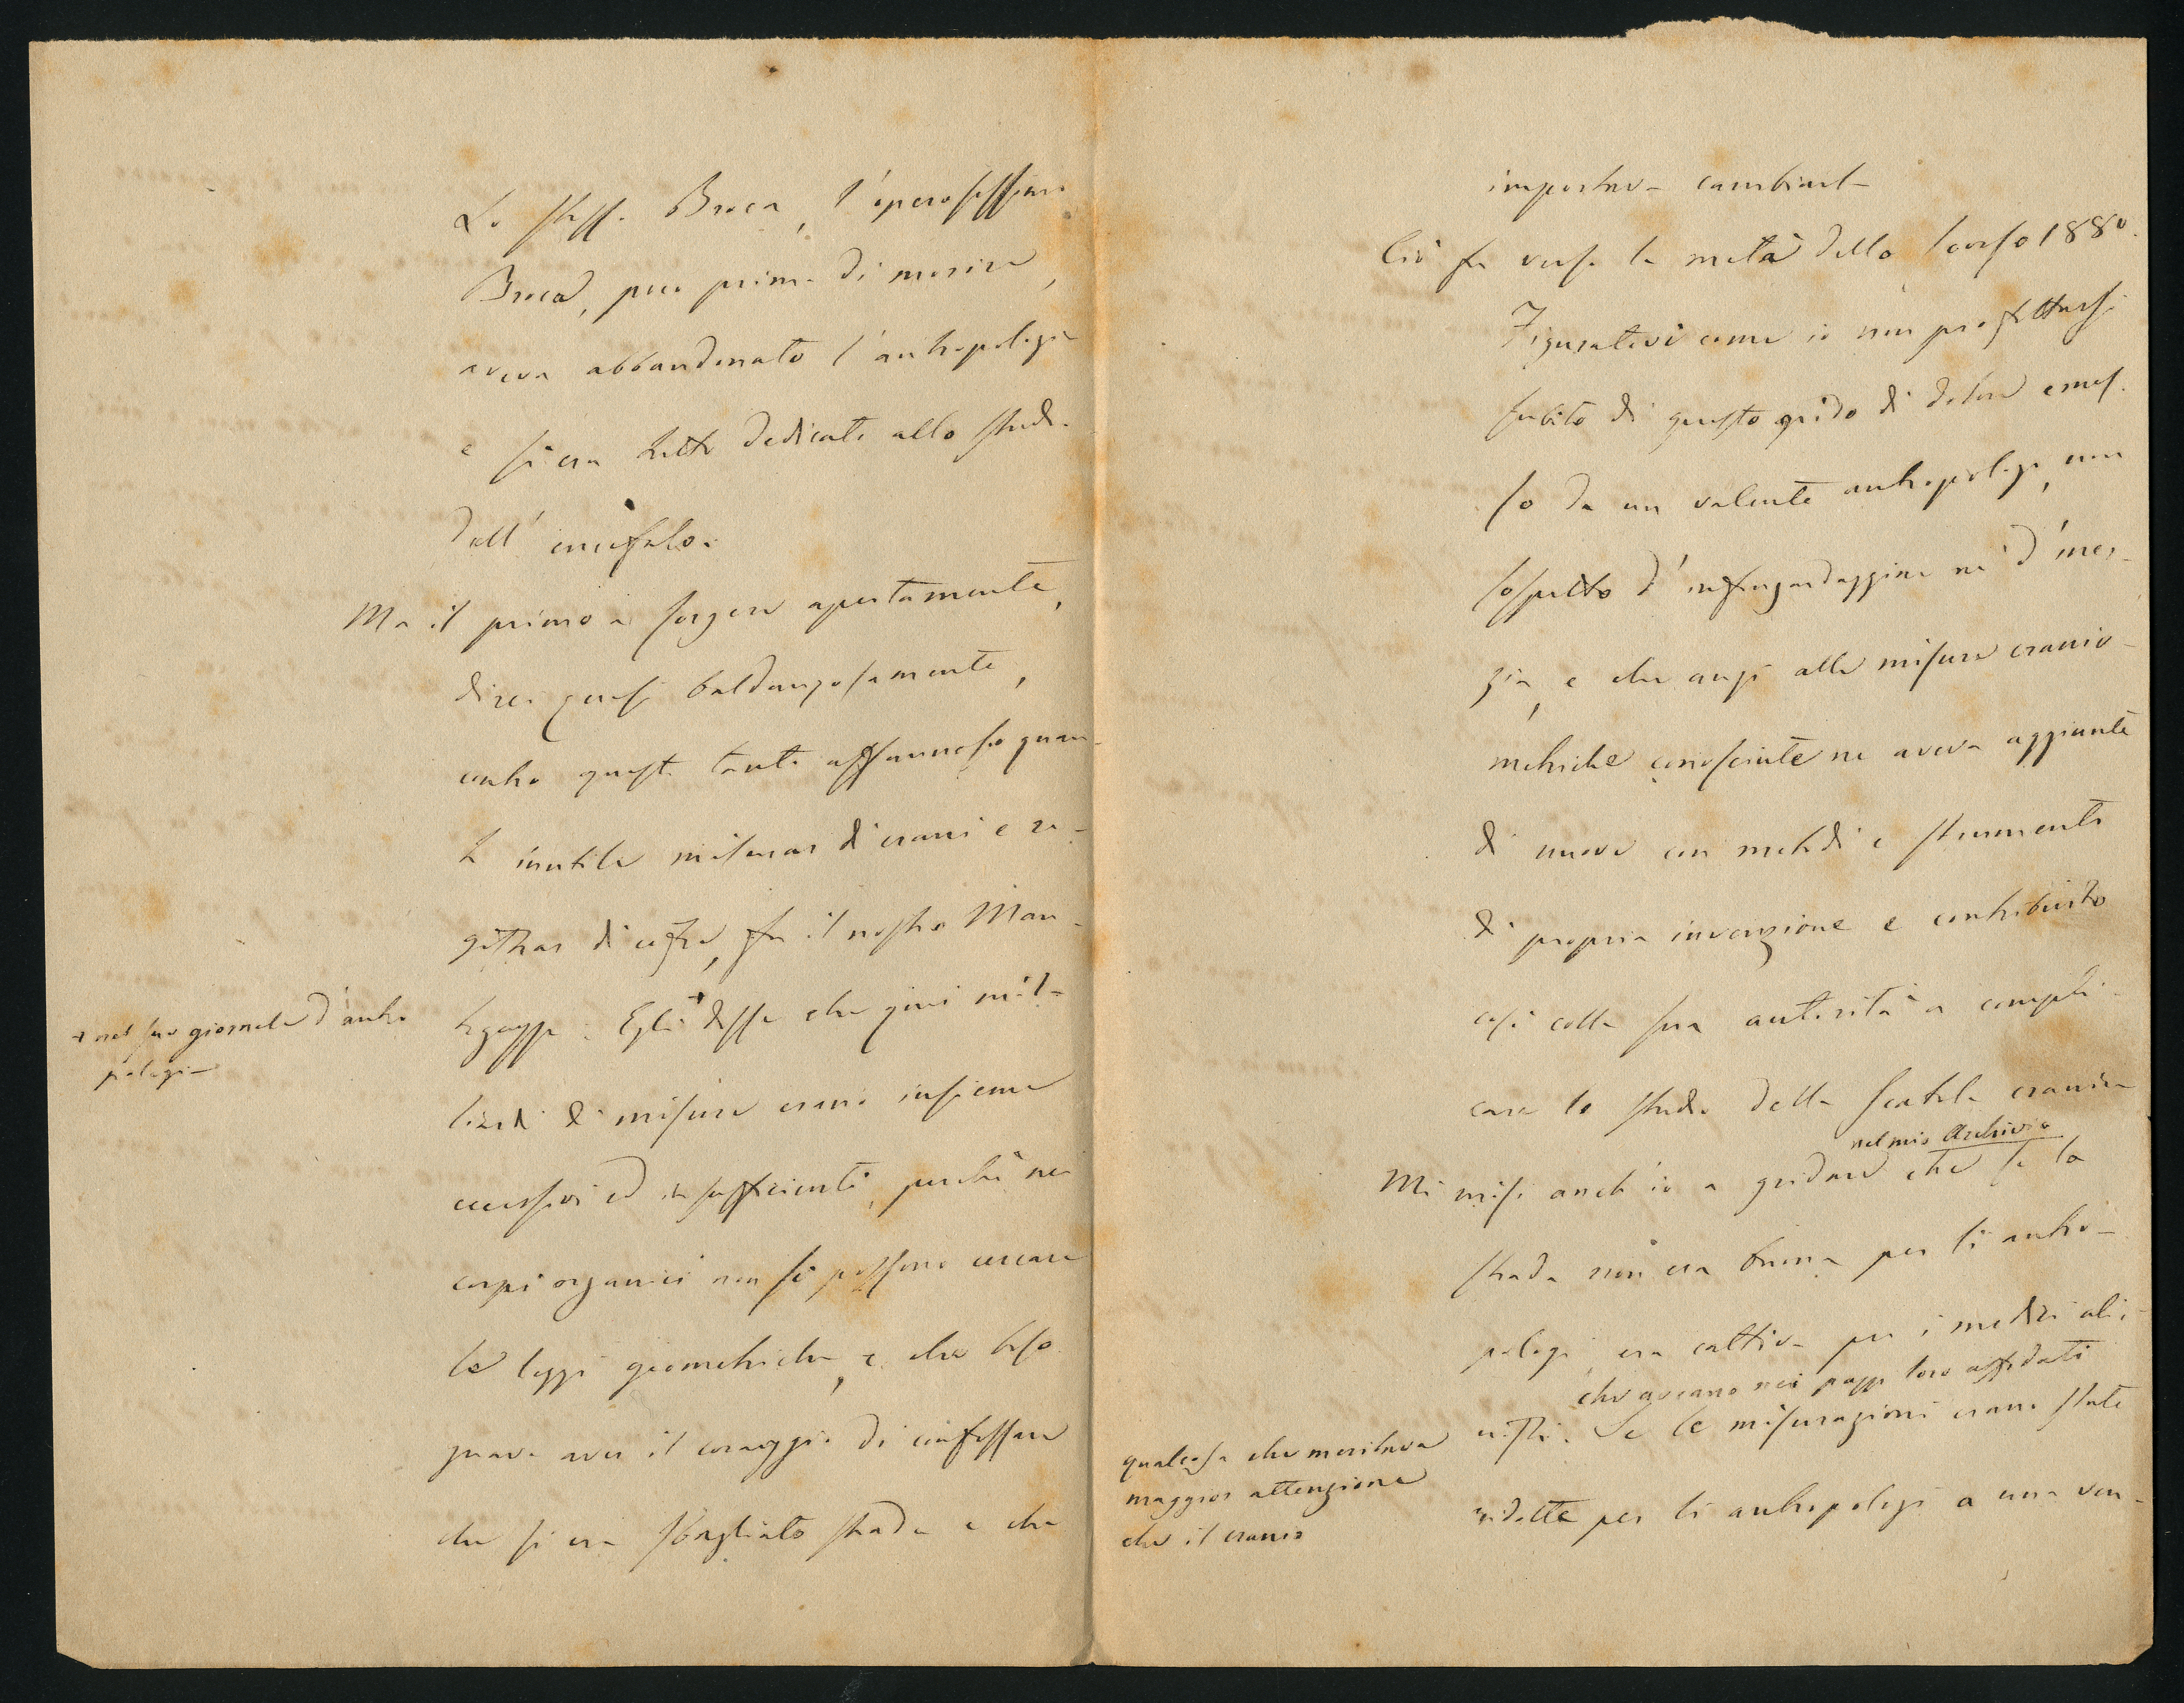 Lo stesso Broca, l'operosissimo
Broca, poco prima di morire,
aveva abbandonato l'antropologia
e si era tutto dedicato allo studio
dell'encefalo.
Ma il primo a sorgere apertamente,
direi quasi baldanzosamente,
contro questo tanto affannoso quan-
to inutile misurar di crani e re-
gistrar di cifre, fu il nostro Man-
tegazza. Egli + disse che quei mi-
+ nel suo giornale d'antro
pologia
liardi di misure erano insieme
eccessivi ed insufficienti, perchè nei
corpi organici non si possono cercare
le leggi geometriche, e che biso
gnava aver il coraggio di confessare
che si era sbagliato strada e che
importava cambiarla
Ciò fu verso la metà dello scorso 1880.
Figuratevi come io non profittassi
subito di questo grido di dolore emes-
so da un valente antropologo, non
sospetto d'infingardaggine nè d'iner-
zia, e che anzi alle misure cranio-
metriche conosciute ne aveva aggiunte
di nuove con metodi e strumenti
di propria invenzione e contribuito
così colla sua autorità a compli-
care lo studio della scatola cranica
nel mio Archivio
Mi misi anch'io a gridare che se la
strada non era buona per li antro-
pologi, era cattiva per i medici alie-
che avevano nei pazzi loro affidati
qualcosa che meritava
maggior attenzione
che il cranio
nisti. Se le misurazioni erano state
ridotte per li antropologi a una ven-